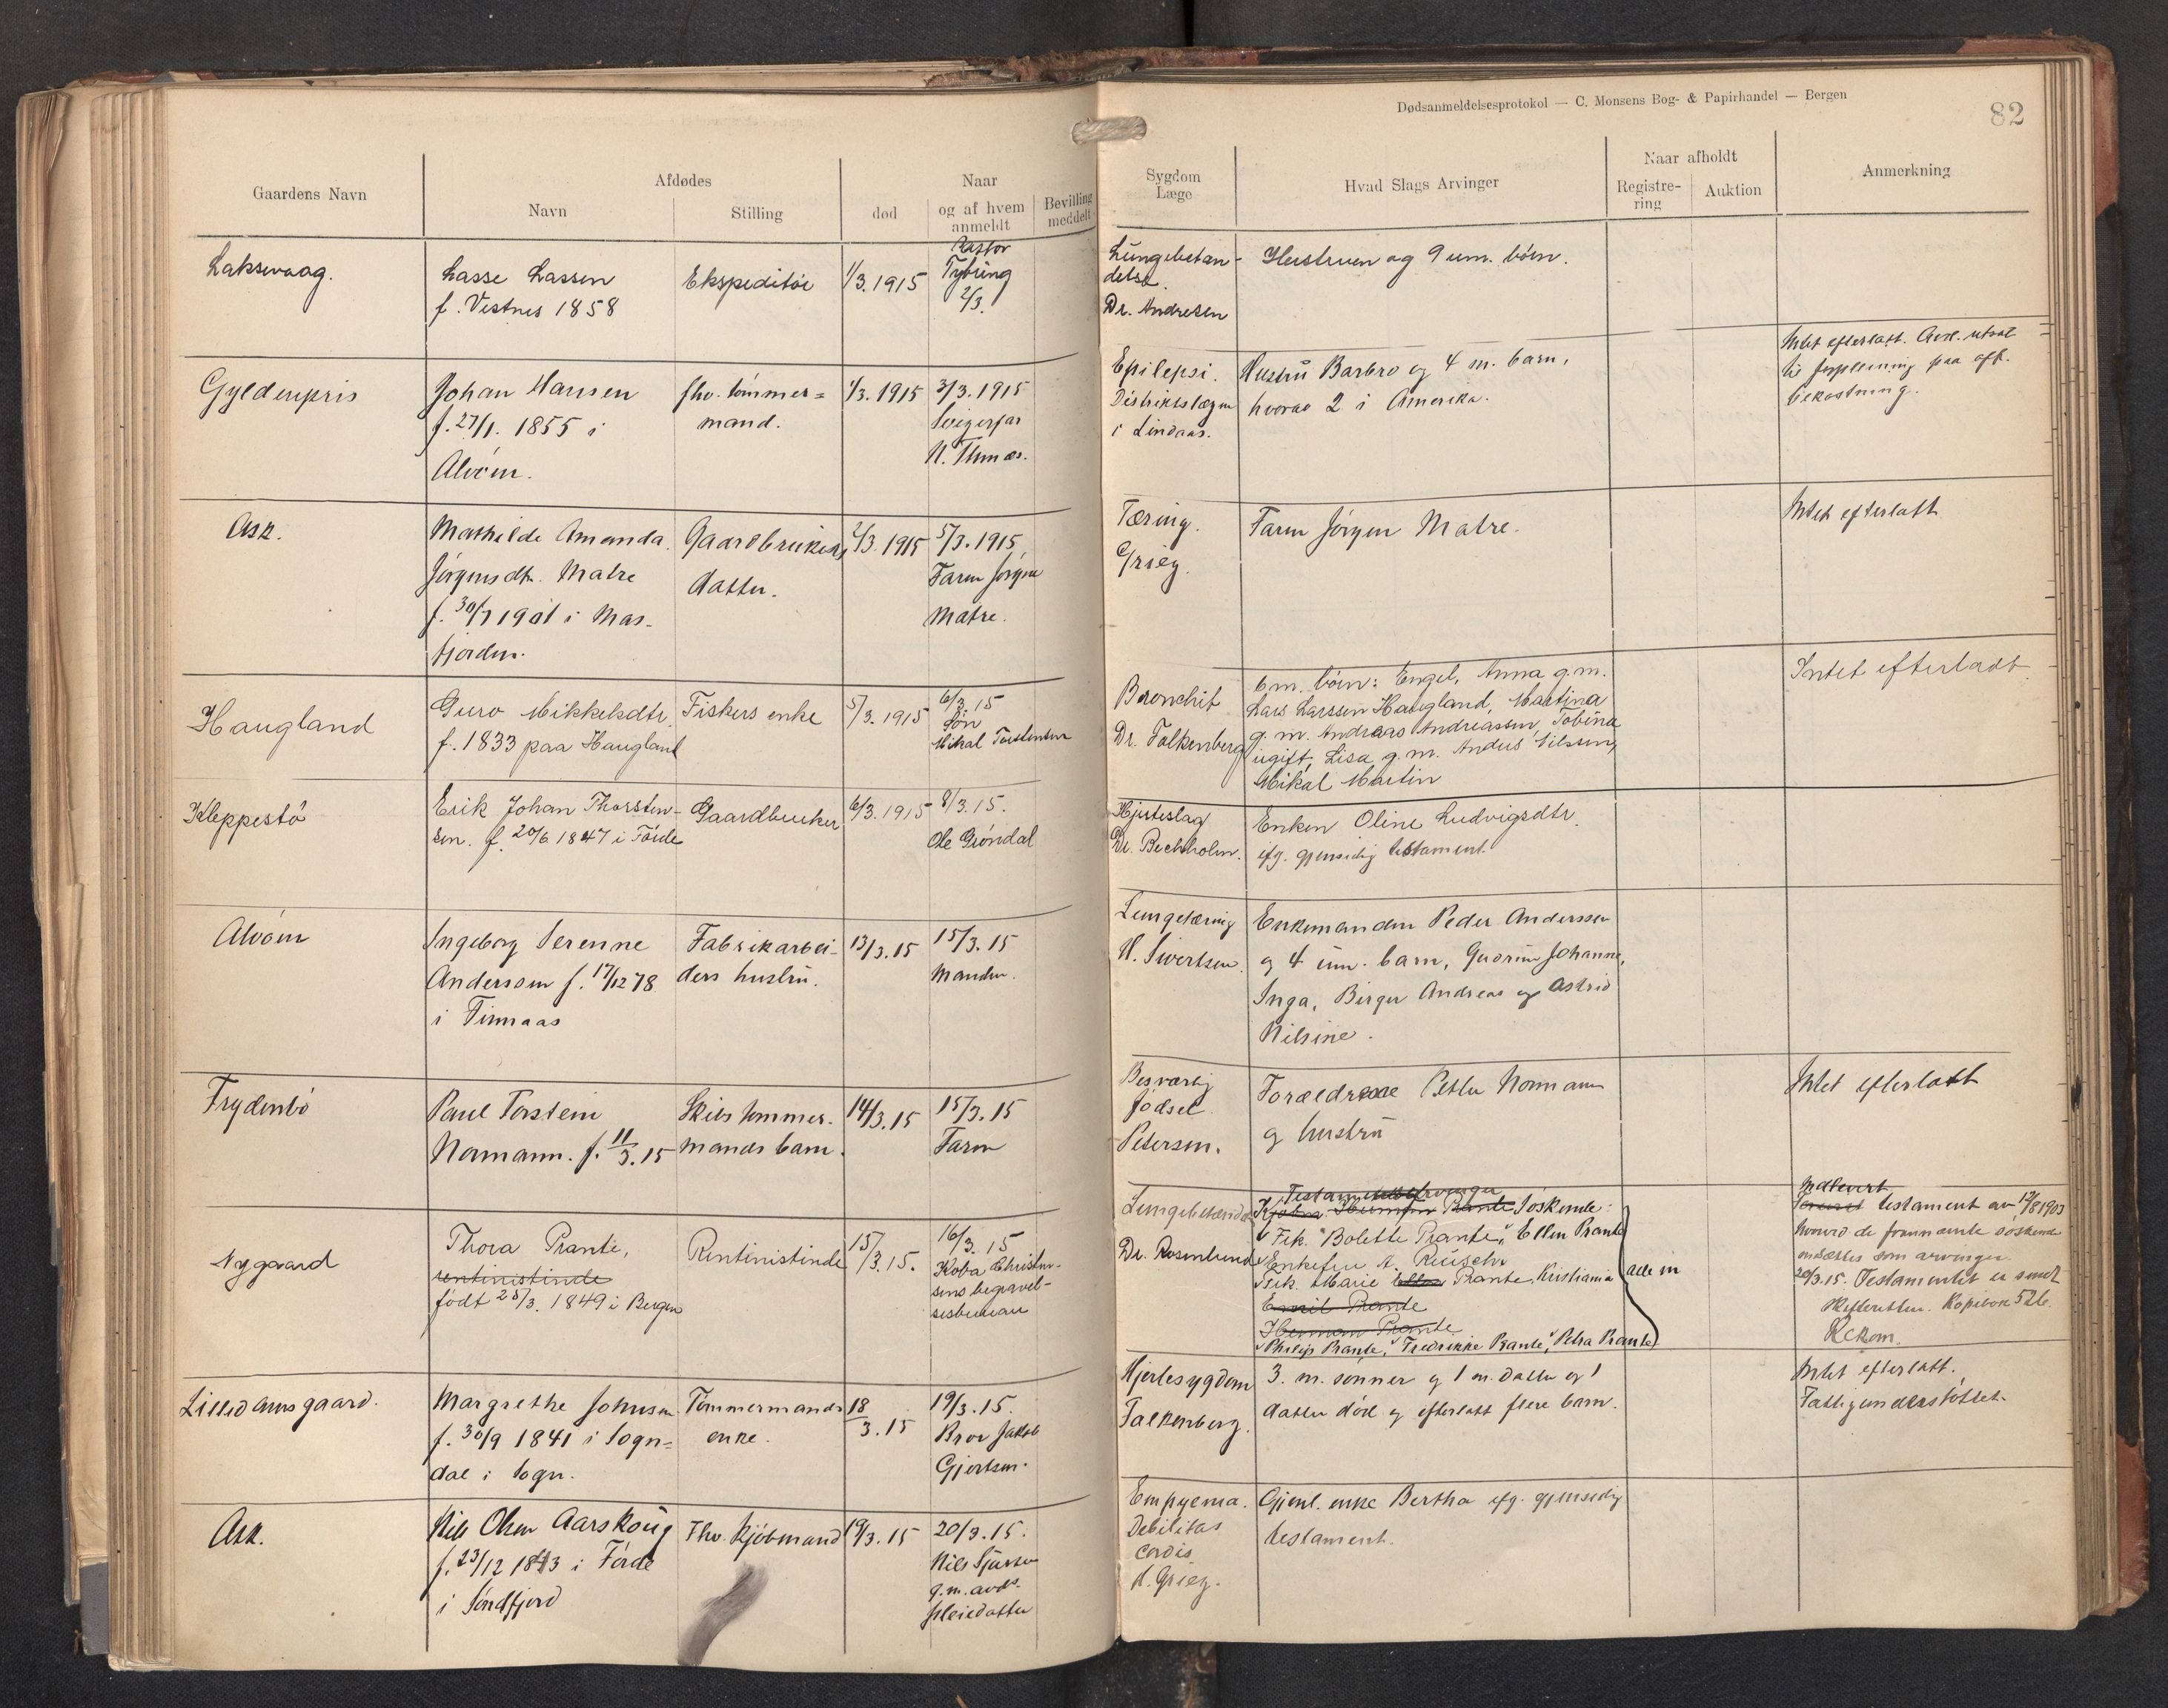 Dødsanmeldelsesprotokol — C. Monsens Bog- & Papirhandel — Bergen
82
Gaardens Navn
Afdødes
Navn
Stilling
Naar
død
og af hvem
anmeldt
Bevilling
meddelt
Sygdom
Læge
Hvad Slags Arvinger
Naar afholdt
Registre-
ring
Auktion
Anmerkning
Laksevaag.
Lasse Lassen
f. Vestnes 1858
Ekspeditør
1/3. 1915
Pastor
Tybring
2/3.
Lungebetæn-
delse.
Dr. Andresen
Hustruen og 9 um. børn.
Gyldenpris
Johan Hansen
f. 27/1. 1855 i
Alvøen.
fhv. tømmer=
mand.
1/3. 1915
3/3. 1915
Svigerfar
Epilepsi.
Distriktslægen
i Lindaas.
Hustru Barbro og 4 m. barn,
hvorav 2 i Amerika.
Intet efterlatt.
til forpleining paa off.
bekostning.
Ask.
Mathilde Amanda
Jørgensdtr. Matre
f. 30/7 1901 i Mas-
fjorden.
Gaardbrukers
datter.
2/3. 1915
5/3. 1915
Faren Jørgen
Matre.
Tæring.
Grieg.
Faren Jørgen Matre.
Intet efterlatt
Haugland
Guro Mikkelsdtr.
f. 1833 paa Haugland
Fiskers enke
5/3. 1915
6/3. 15
Søn
Mikal Torstensen
Bronchit
Dr. Falkenberg
6 m. børn: Engel, Anna g.m.
Lars Larssen Haugland, Martina
g. m. Andreas Andreassen, Tobina
ugift, Lisa g. m. Anders Nilssen,
Mikal Martin
Intet efterladt
Kleppestø
Erik Johan Thorsten-
sen. f. 20/6 1847 i Førde
Gaardbruker
6/3. 1915
8/3. 15.
Ole Grøndal
Hjerteslag
Dr. Bechholm.
Enken Oline Ludvigsdtr.
ifg. gjensidig testament.
Alvøen
Ingeborg Serenne
Anderssen f. 17/12 78
i Finnaas
Fabrikarbei-
ders hustru.
13/3. 15
15/3. 15
Manden.
Lungetæring
H. Sivertsen.
Enkemanden Peder Anderssen
og 4 um. barn, Gudrun Johanne,
Inga, Birger Andreas og Astrid
Nilsine.
Frydenbø
Paul Torstein
Normann. f. 11/3. 15
Skibstømmer-
mands barn.
14/3. 15
15/3. 15
Faren
Besværlig
fødsel.
Petersen.
Forældrene Petter Normann
og hustru
Intet efterlatt
Nygaard
Thora Prante,
rentinistinde
født 25/3. 1849 i Bergen
Rentinistinde
15/3. 15.
16/3. 15
Koba Christen-
sens begravel-
sesbureau
Dr. Rosenlund
Testamentsarvinger
Prante Søskende:
Frk. Bolette Prante, Ellen Prante
Enkefru A. Reusch
Frk. Marie Ellen Prante, Kristiania
Emil Prante
Herman Prante
Philip Prante, Fredrikke Prante, Petra Prante
alle m
Indlevert
testament av 12/8 1903
hvorved de frannævnte søskende
indsættes som arvinger.
20/3. 15. Testamentet er sendt
skifteretten. Kopibok 526.
Lilledamsgaard.
Margrethe Johnsen
f. 30/9 1841 i Sogn=
dal i Sogn.
Tømmermands
enke.
18/3. 15
19/3. 15.
Bror Jakob
Gjertsen.
Hjertesygdom
Falkenberg.
3. m. sønner og 1 m. datter og 1
datter død og efterlatt flere barn.
Intet efterlatt.
Fattigunderstøttet.
Ask.
Nils Olsen Aarskoug
f. 23/12 1843 i Førde
i Søndfjord
Fhv. kjøbmand
19/3. 15
20/3. 15.
Nils Sjursen
g. m. avds.
pleiedatter
Empyema.
Debilitas
cordis.
H. Grieg.
Gjenl. enke Bertha ifg. gjensidig
testament.